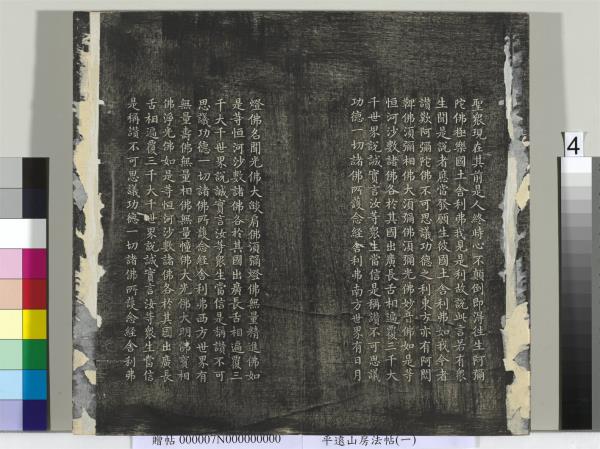 聖衆現在其前是人終時心不顛倒即淂往生阿彌
陀佛極樂國土舍利弗我見是利故説此言若有衆
生聞是説者應當發願生彼國土舍利弗如我今者
讃歎阿彌陀佛不可思議功徳之利東方亦有阿閦
鞞佛須彌相佛大須彌佛須彌光佛妙音佛如是等
恒河沙數諸佛各於其國出廣長舌相遍覆三千大
千世界説誠實言汝等衆生當信是稱讃不可思議
功徳一切諸佛所護念經舍利弗南方世界有日月
燈佛名聞光佛大燄肩佛須彌燈佛無量精進佛如
是等恒河沙數諸佛各於其國出廣長舌相遍覆三
千大千世界説誠實言汝等衆生當信是稱讃不可
思議功徳一切諸佛所護念經舍利弗西方世界有
無量壽佛無量相佛無量幢佛大光佛大明佛寶相
佛淨光佛如是等恒河沙數諸佛各於其國出廣長
舌相遍覆三千大千世界説誠實言汝等衆生當信
是稱讃不可思議功徳一切諸佛所護念經舍利弗
4
贈帖 000007N000000000 平遠山房法帖(一)